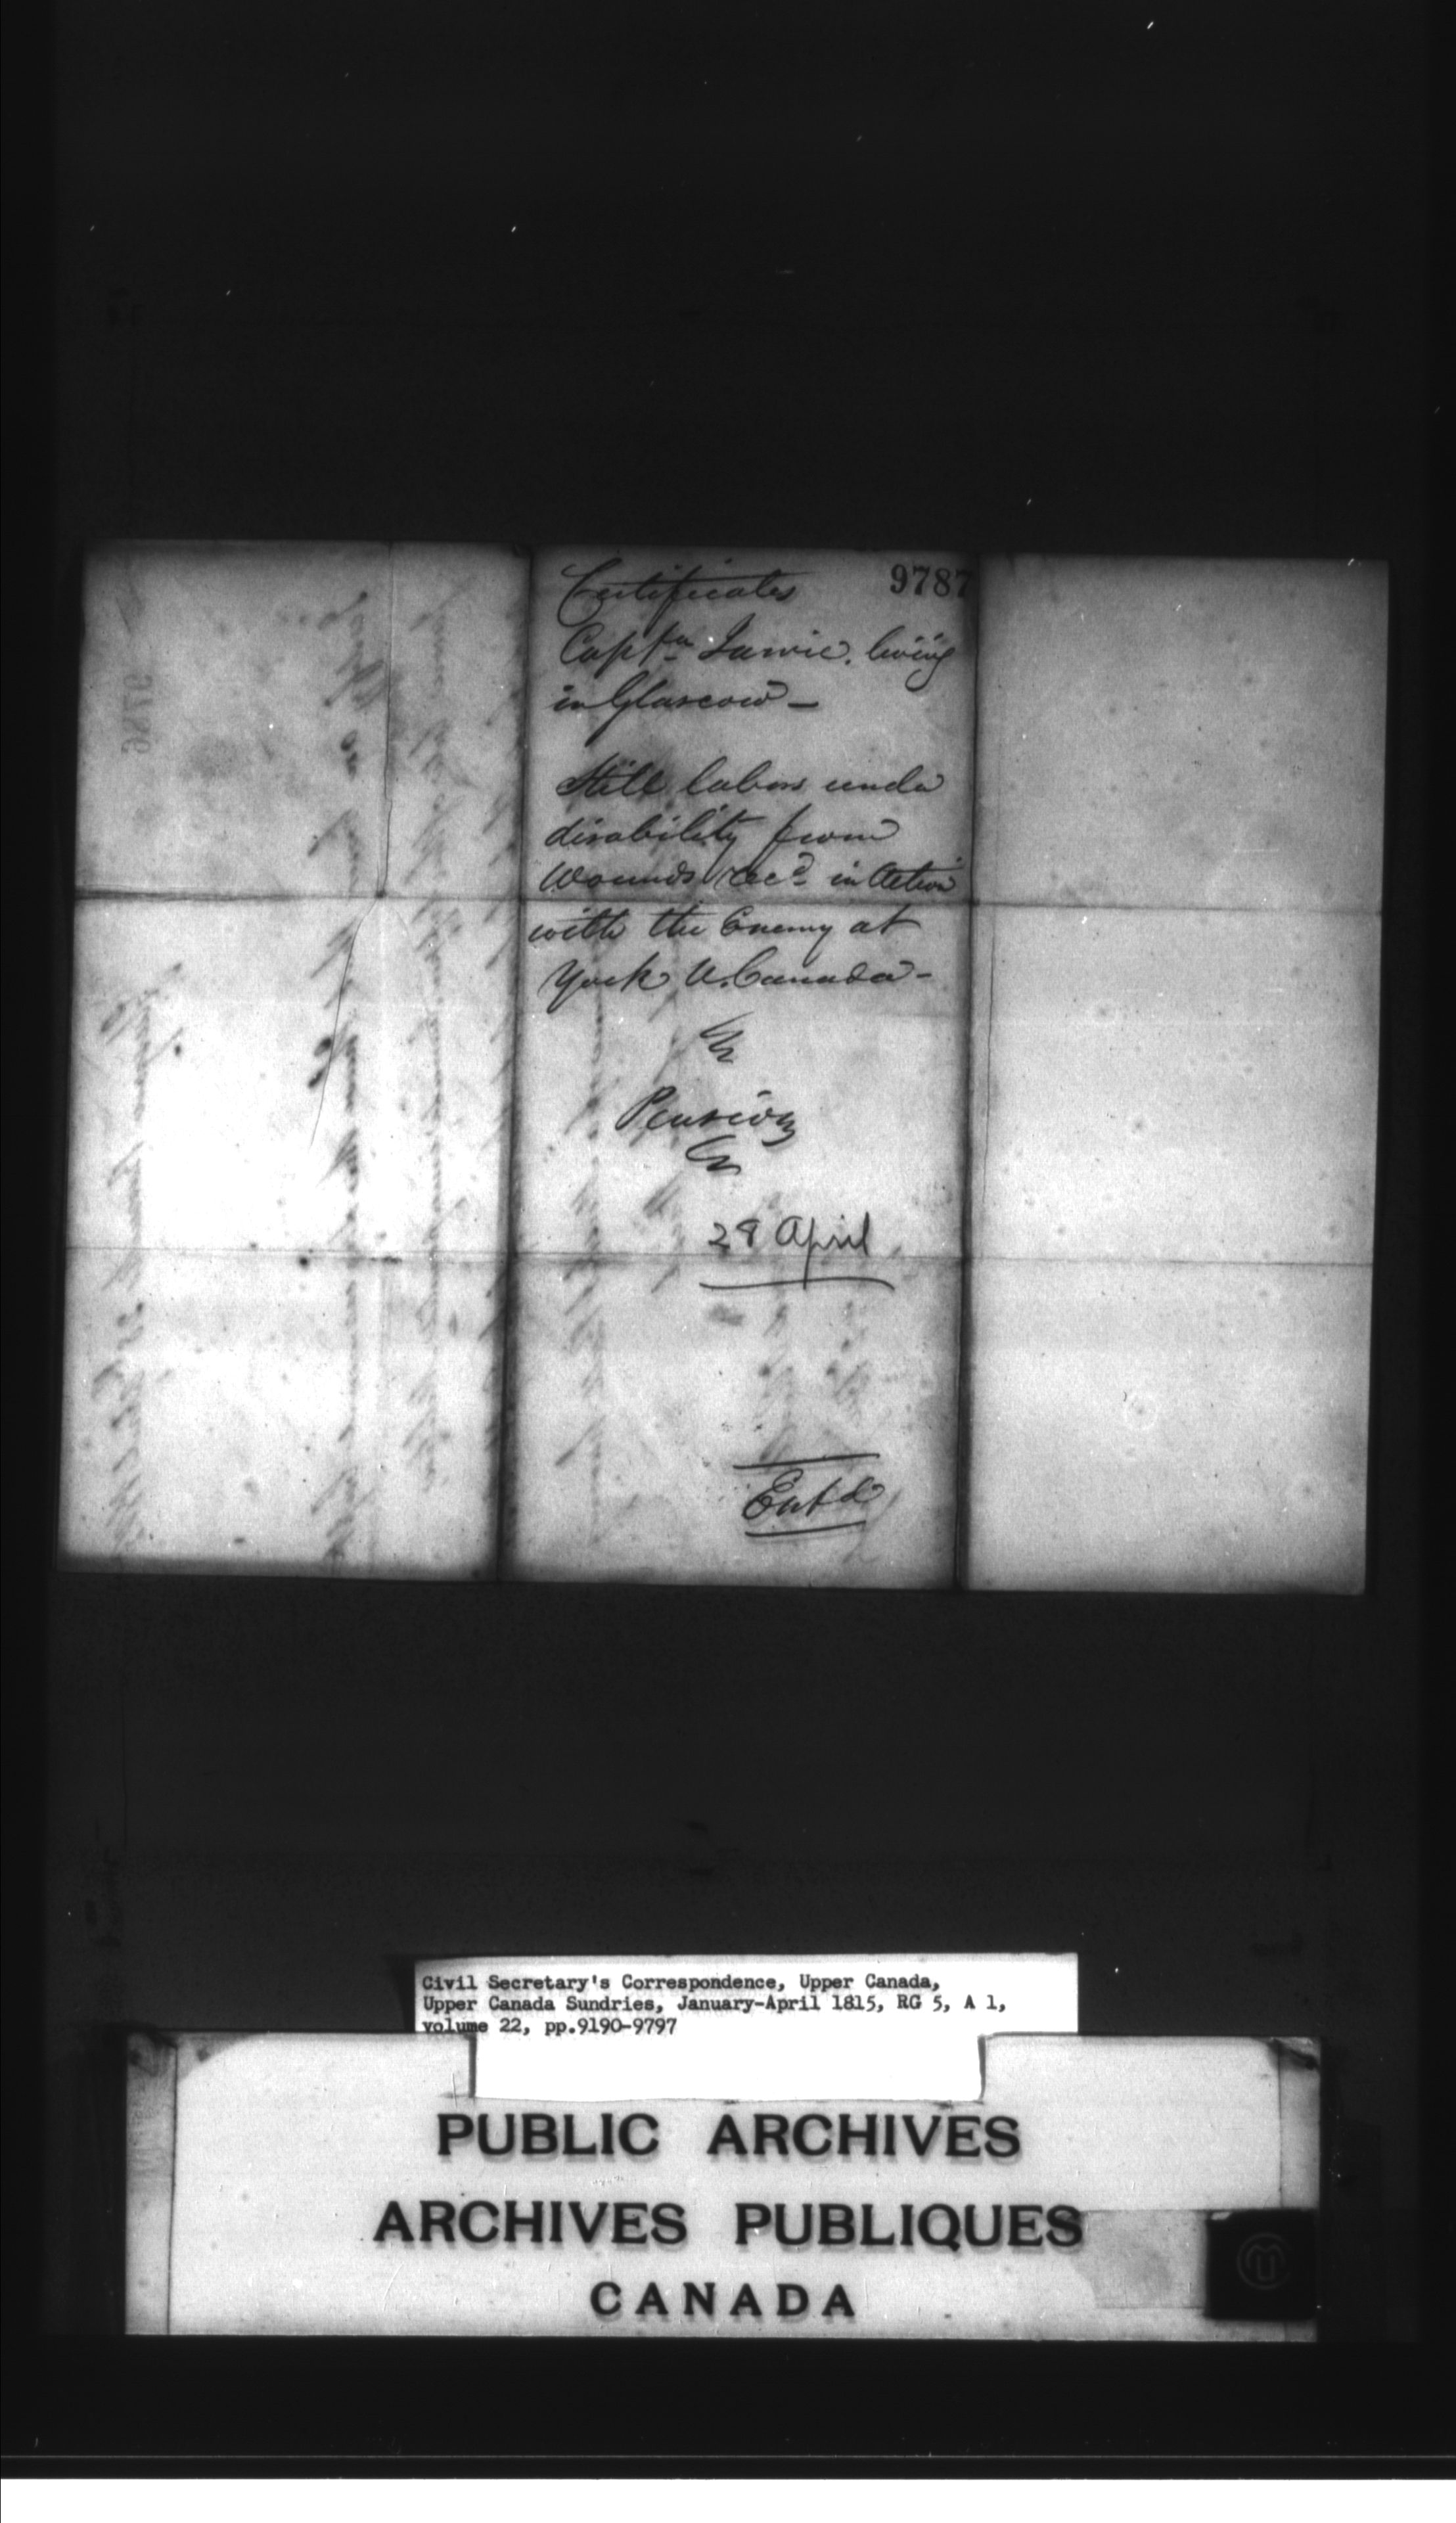 9787
Certificates
Captn Jarvie. living
in Glascow —
Still labors under
disability from
Wounds recd in Action
with the Enemy at
York U. Canada —
Pension
28 April
Entd
Civil Secretary's Correspondence, Upper Canada,
Upper Canada Sundries, January-April 1815, RG 5, A 1,
volume 22, pp.9190-9797
PUBLIC ARCHIVES
ARCHIVES PUBLIQUES
CANADA